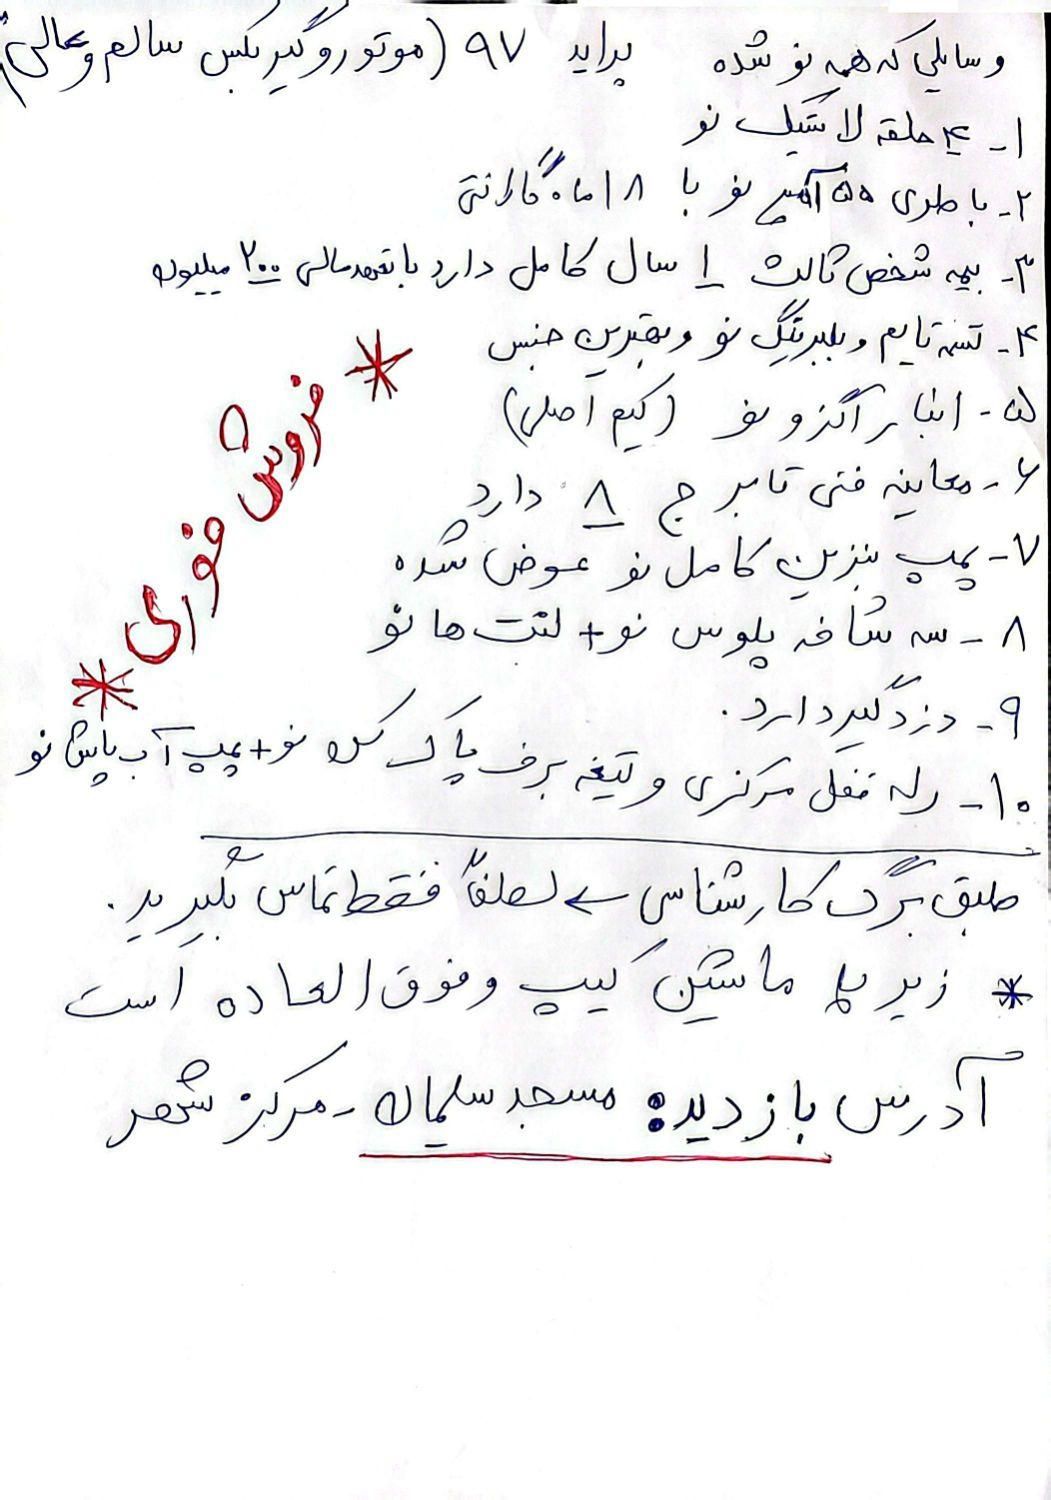 وسایلی که همه نو شده پراید ۹۷ (موتور و گیربکس سالم و عالی)
۱- ۴ حلقه لاستیک نو
۲- باطری ۵۵ آمپر نو با ۱۸ ماه گارانتی
۳- بیمه شخص ثالث ۱ سال کامل دارد با تعهد مالی ۲۰۰ میلیون
۴- تسمه تایم و بلبرینگ نو و بهترین جنس
۵- انبار اگزوز نو (کیم اصلی)
۶- معاینه فنی تا برج ۸ دارد
۷- پمپ بنزین کامل نو عوض شده
۸- سه شاخه پلوس نو + لنت ها نو
۹- دزدگیر دارد.
۱۰- رله قفل مرکزی و تیغه برف پاک کن نو + پمپ آب پاش نو
* فروش فوری *
طبق برگ کارشناسی لطفاً فقط تماس بگیرید.
* زیر و بند ماشین کیپ و فوق العاده است
آدرس بازدید: مسجد سلیمان - مرکز شهر